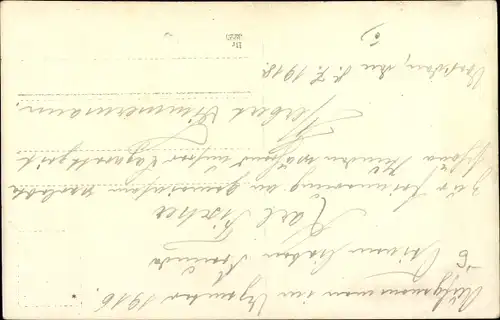 Potsdam, den 8.7.1918.
Seinem lieben Freunde
Karl Fischer
zur Erinnerung an gemeinsam verlebte
schöne Stunden während unserer Lazarettzeit.
Herbert Zimmermann.
Aufgenommen im Dezember 1916.